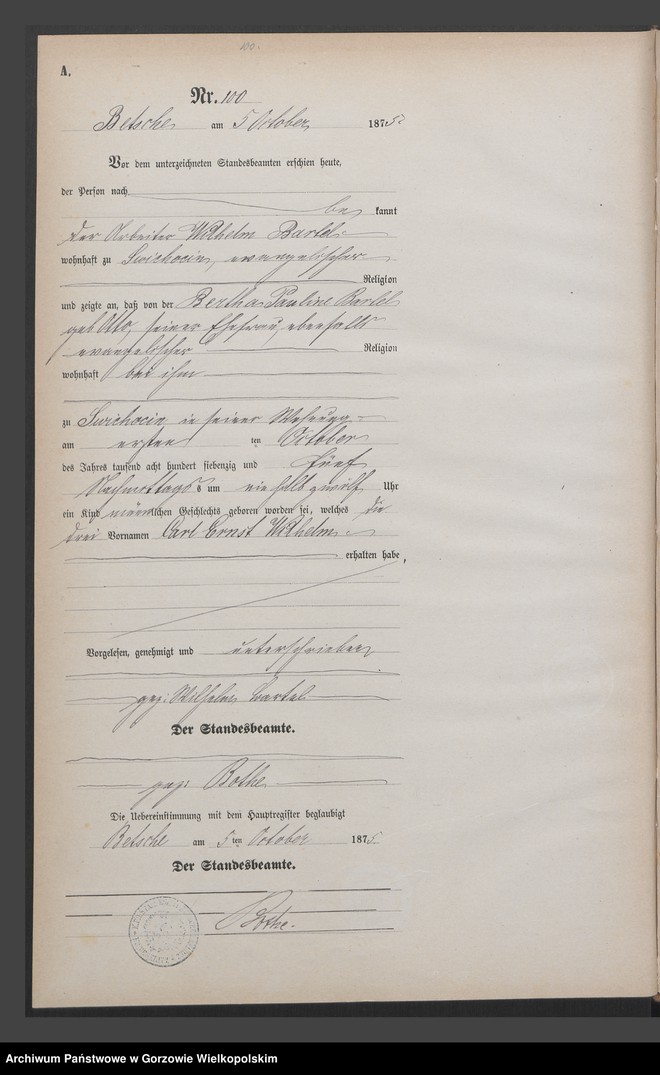 100.
A.
Nr. 100
Betsche am 5 October 1875
Vor dem unterzeichneten Standesbeamten erschien heute,
der Person nach
be kannt
der Arbeiter Wilhelm Bartel
wohnhaft zu Swichocin, evangelischer
Religion
und zeigte an, daß von der Bertha Pauline Bartel
geb Otto, seiner Ehefrau, ebenfalls
evangelischer Religion
wohnhaft bei ihm
zu Swichocin in seiner Wohnung
am ersten ten October
des Jahres tausend acht hundert siebenzig und fünf
Nachmittags um ein halb zwölf Uhr
ein Kind männlichen Geschlechts geboren worden sei, welches die
drei Vornamen Carl Ernst Wilhelm
erhalten habe,
Vorgelesen, genehmigt und unterschrieben
gez: Wilhelm Bartel
Der Standesbeamte.
gez: Bothe
Die Uebereinstimmung mit dem Hauptregister beglaubigt
Betsche am 5 ten October 1875.
Der Standesbeamte.
Bothe.
Archiwum Państwowe w Gorzowie Wielkopolskim